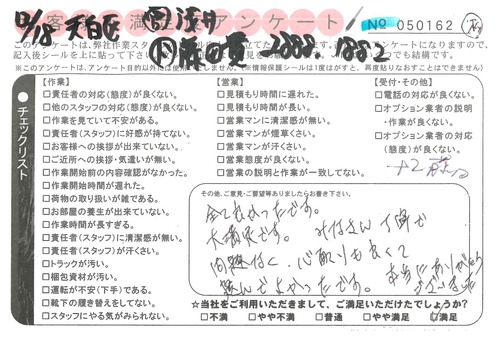 お客様満足度アンケート
No 050162
12/18 天白区
このアンケートは、弊社作業スタ
記入後シールを上に貼って下さい
でも結構です。
(※このアンケートは、アンケート目的以外には使用いたしません。※情報保護シールは1度はがすと、再度貼りなおすことはできません)
チェックリスト
【作業】
□責任者の対応(態度)が良くない。
□他のスタッフの対応(態度)が良くない。
□作業を見ていて不安がある。
□責任者(スタッフ)に好感が持てない。
□お客様への挨拶が出来ていない。
□ご近所への挨拶・気遣いが無い。
□作業開始前の内容確認がなかった。
□作業開始時間が遅れた。
□荷物の取り扱いが雑である。
□お部屋の養生が出来ていない。
□作業時間が長すぎる。
□責任者(スタッフ)に清潔感が無い。
□責任者(スタッフ)が汗くさい。
□トラックが汚い。
□梱包資材が汚い。
□運転が不安(下手)である。
□靴下の履き替えをしてない。
□スタッフにやる気がみられない。
【営業】
□見積もり時間に遅れた。
□見積もり時間が長い。
□営業マンに清潔感が無い。
□営業マンが煙草くさい。
□営業マンが汗くさい。
□営業態度が良くない。
□営業の説明と作業が一致してない。
【受付・その他】
□電話の対応が良くない。
□オプション業者の説明・作業が良くない。
□オプション業者の対応(態度)が良くない。
その他、ご意見・ご要望等ありましたらお書き下さい。
全て良かったです。
大満足です。みなさん丁寧で
問題なく、心配りも良くて
選んでよかったです。本当にありがとうございました
☆当社をご利用いただきまして、ご満足いただけたでしょうか?
□不満 □やや不満 □普通 □やや満足 ☑満足